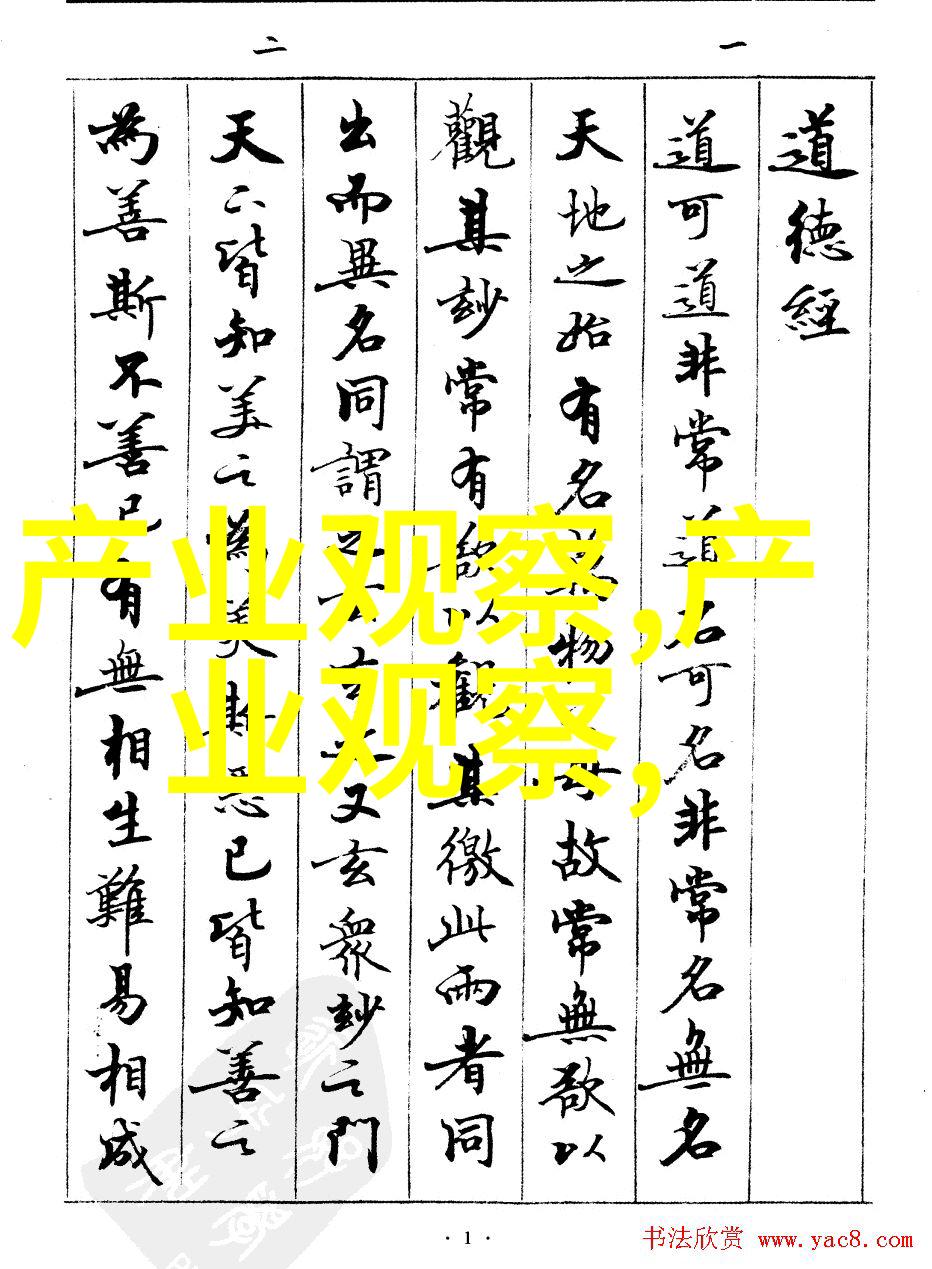 一
二
道德經
道可道非常道名可名非常名無名
天地之始有名萬物之母故常無欲以
觀其妙常有欲以觀其徼此兩者同
出而異名同謂之玄玄之又玄衆妙之門
天下皆知美之為美斯惡已皆知善之
為善斯不善已有無相生難易相成
产业观察,产
业观察,
·1·
书法欣赏 www.yac8.com